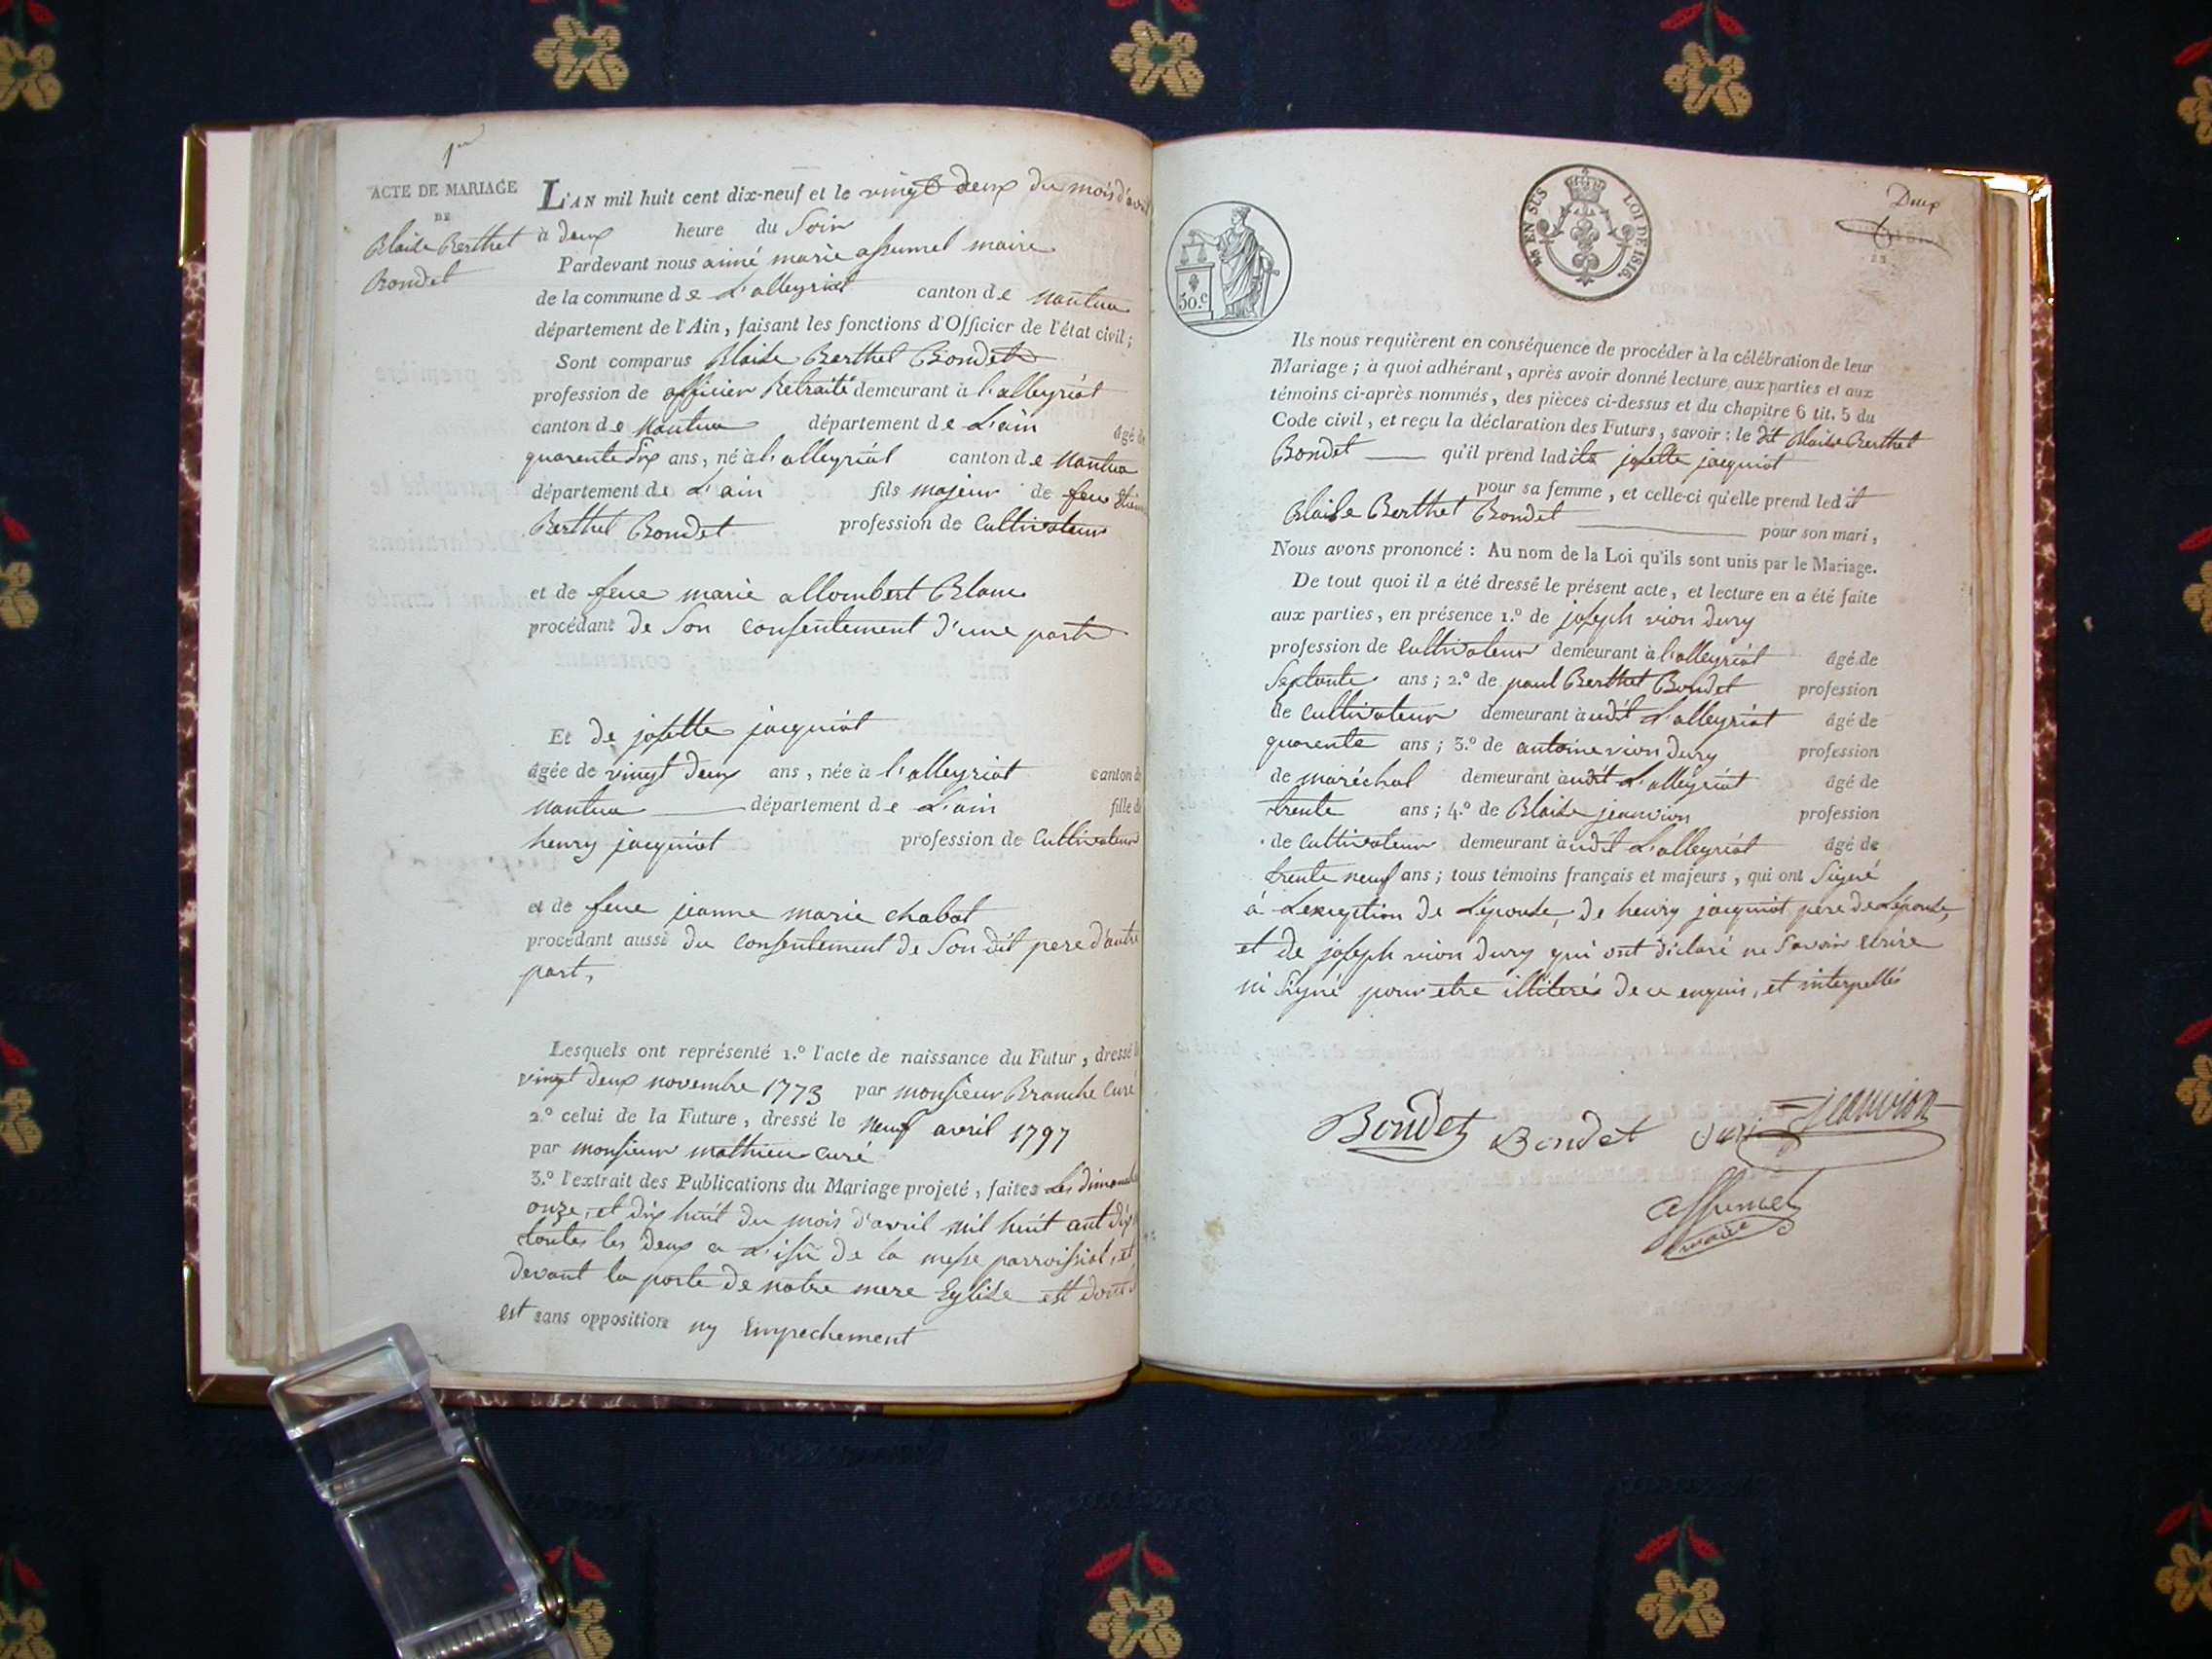 1er
ACTE DE MARIAGE
DE
Blaise Berthet
Bondet
L'AN mil huit cent dix-neuf et le vingt deux du mois d'avril
à deux heure du Soir
Pardevant nous aimé marie assumel maire
de la commune de L'alleyriat canton de Nantua
département de l'Ain, faisant les fonctions d'Officier de l'état civil;
Sont comparus Blaise Berthet Bondet
profession de officier Retraité demeurant à l'alleyriat
canton de Nantua département de L'ain âgé de
quarente six ans, né à l'alleyriat canton de Nantua
département de L'ain fils majeur de feu
Berthet Bondet profession de Cultivateur
et de feue marie allombert Blanc
procédant de Son consentement d'une part
Et de josette jacquiot
âgée de vingt deux ans, née à l'alleyriat canton de
Nantua département de L'ain fille de
henry jacquiot profession de Cultivateur
et de feue jeanne marie chabot
procédant aussi du consentement de Son dit pere d'autre
part,
Lesquels ont représenté 1.º l'acte de naissance du Futur, dressé le
vingt deux novembre 1773 par monsieur Branche Curé
2.º celui de la Future, dressé le neuf avril 1797
par monsieur mathieu curé
3.º l'extrait des Publications du Mariage projeté, faites les dimanches
onze, et dix huit du mois d'avril mil huit cent dix
toutes les deux a L'isû de la messe parroissial, et
devant la porte de notre mere Eglise est dont
est sans opposition ny Empechement
50.c
EN SUS LOI DE 1816.
Deux
Ils nous requièrent en conséquence de procéder à la célébration de leur
Mariage; à quoi adhérant, après avoir donné lecture aux parties et aux
témoins ci-après nommés, des pièces ci-dessus et du chapitre 6 tit. 5 du
Code civil, et reçu la déclaration des Futurs, savoir: le dit Blaise Berthet
Bondet qu'il prend ladite josette jacquiot
pour sa femme, et celle-ci qu'elle prend ledit
Blaise Berthet Bondet pour son mari,
Nous avons prononcé: Au nom de la Loi qu'ils sont unis par le Mariage.
De tout quoi il a été dressé le présent acte, et lecture en a été faite
aux parties, en présence 1.º de joseph vion dury
profession de Cultivateur demeurant à l'alleyriat âgé de
Septante ans; 2.º de paul Berthet Bondet profession
de Cultivateur demeurant àudit L'alleyriat âgé de
quarente ans; 3.º de antoine vion dury profession
de maréchal demeurant àudit L'alleyriat âgé de
trente ans; 4.º de Blaise jeanvion profession
de Cultivateur demeurant àudit L'alleyriat âgé de
trente neuf ans; tous témoins français et majeurs, qui ont Signé
à L'exception de L'épouse, de henry jacquiot pere de L'épouse,
et de joseph vion dury qui ont diclaré ne Savoir ecrire
ni Signé pour etre illiterés de ce enquis, et interpellés
Bondet Bondet duri jeanvion
assumel
maire